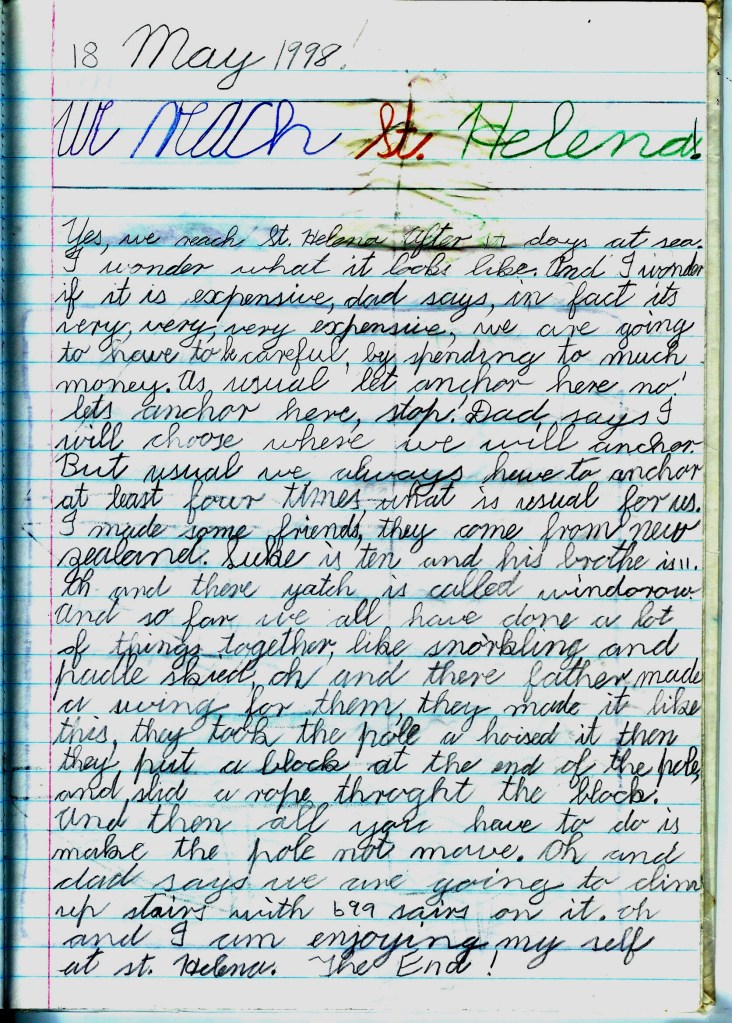 18 May 1998!
We reach St. Helena!
Yes, we reach St. Helena after 17 days at sea.
I wonder what it looks like. And I wonder
if it is expensive, dad says, in fact its
very, very, very expensive, we are going
to have to be careful, by spending to much
money. As usual let anchor here no!
lets anchor here, stop! Dad, says I
will choose where we will anchor.
But usual we always have to anchor
at least four times, what is usual for us.
I made some friends, they come from new
sealand. Luke is ten and his brothe is 11.
Oh and there yatch is called windorow.
And so far we all have done a lot
of things together, like snorkling and
padle skied, oh and there father made
a swing for them, they made it like
this, they took the pole a hoised it then
they put a block at the end of the pole,
and slid a rope throght the block.
And then all you have to do is
make the pole not move. Oh and
dad says we are going to clim
up stairs with 699 sairs on it. oh
and I am enjoying my self
at st. Helena. The End!